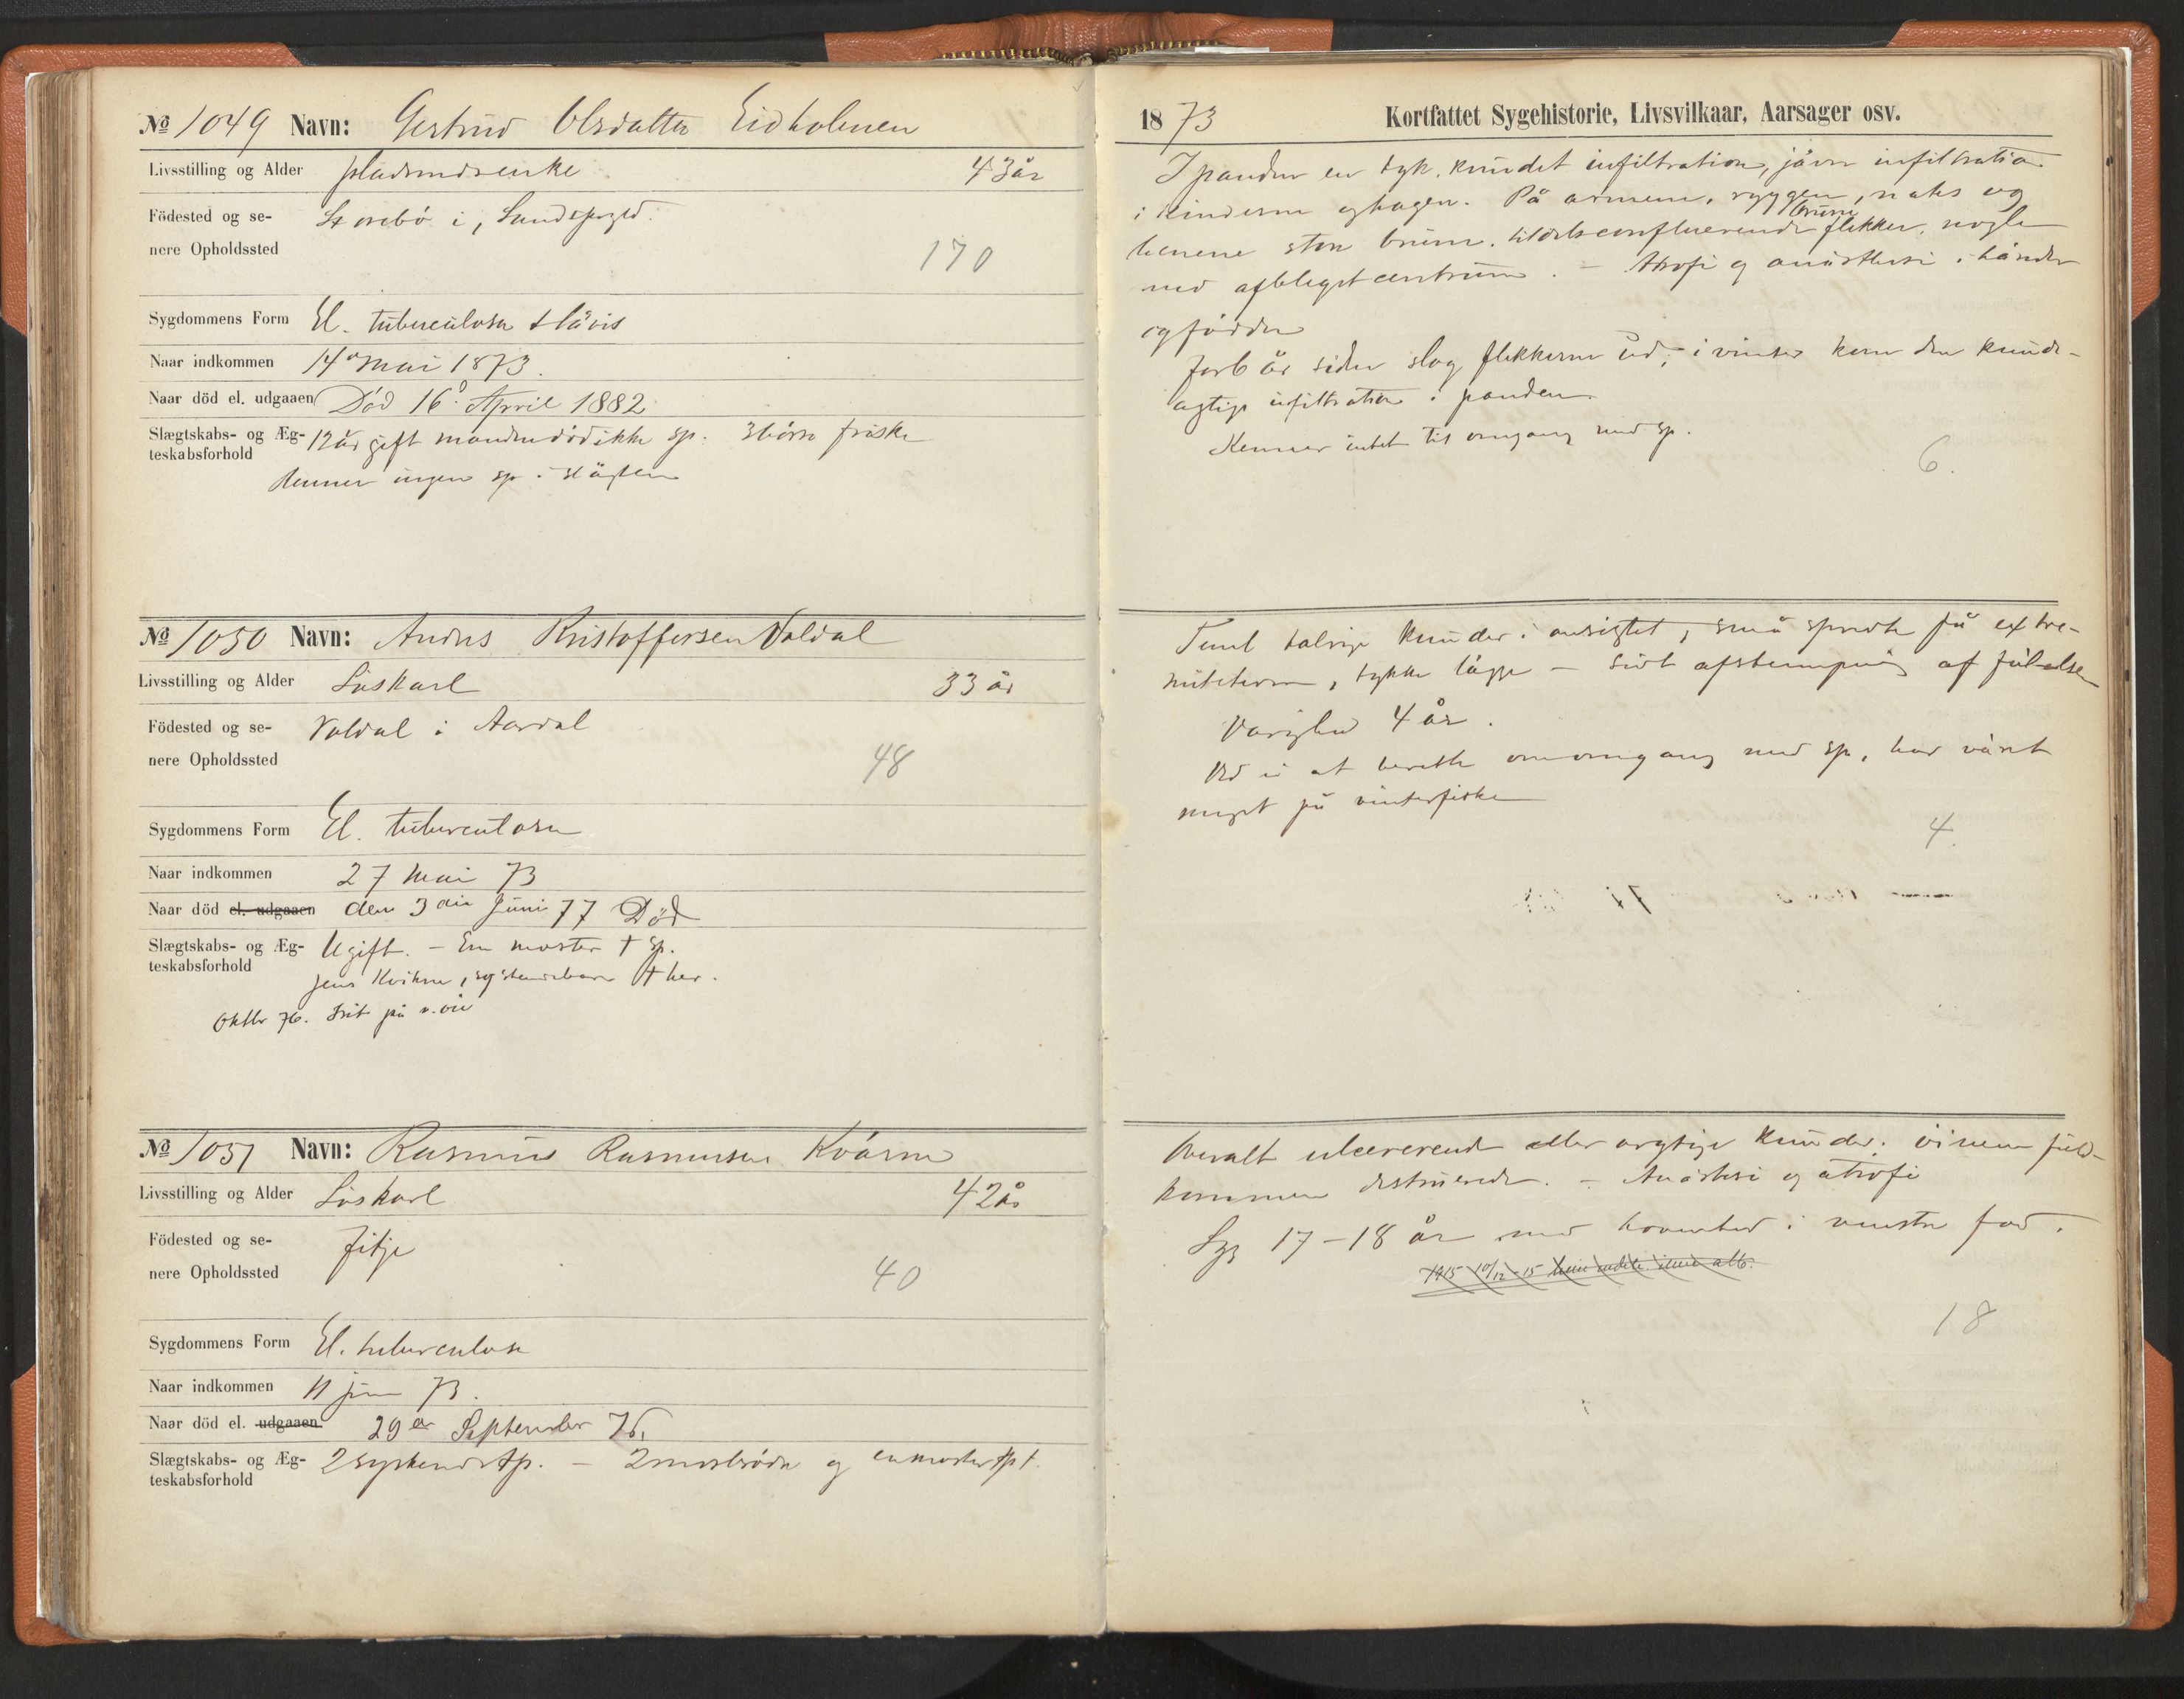 No 1049 Navn: Gertrud Olsdatter Eidholmen
Livsstilling og Alder pladsmdsenke 43 år
Födested og se- Storebö i, Sundsfogd.
nere Opholdssted 170
Sygdommens Form El. tuberculosa
Naar indkommen 14 Mai 1873.
Naar död el. udgaaen Död 16. April 1882
Slægtskabs- og Æg- 12 år gift manden död ikke sp. 3 börn friske
teskabsforhold
kenner ingen sp. i slägten
No 1050 Navn: Anders Kristoffersen Valdal
Livsstilling og Alder Löskarl 33 år
Födested og se- Valdal i Aardal
nere Opholdssted 48
Sygdommens Form El. tuberculosa
Naar indkommen 27 Mai 73
Naar död el. udgaaen den 3die Juni 77 Död
Slægtskabs- og Æg- Ugift. – En moster † sp.
teskabsforhold
Jens Kvikne, syskendebarn † her.
Oktbr 76. på v. öie
No 1051 Navn: Rasmus Rasmussen Kvärne
Livsstilling og Alder Löskarl 42 år
Födested og se- Fitje
nere Opholdssted 40
Sygdommens Form El. tuberculosa
Naar indkommen 11 juni 73.
Naar död el. udgaaen 29 September 76.
Slægtskabs- og Æg- 2 syskende sp. – 2 morbrödre og en moster sp †.
teskabsforhold
1873 Kortfattet Sygehistorie, Livsvilkaar, Aarsager osv.
I panden en tyk, knudet infiltration, jävn infiltration
i kinderne og hagen. På armene, ryggen, nates og
brune
benene store brune, tildels confluerende flekker, nogle
med afbleget centrum. – Atrofi og anästhesi i händer
og födder
For 6 år siden slog flekkerne ud; i vinter kom den knude-
agtige infiltration i panden.
Kenner intet til omgang med sp.
6.
Teml. talrige knuder i ansigtet, små spredte på extre-
miteterne, tykke lägge – Lidt afstumpning af fölelse
Varighed 4 år.
Ved ei at berette om omgang med sp, har väret
meget på vinterfiske
4.
Overalt ulcererende eller knuder. öinene fuld-
kommen destruerede. – Anästhesi og atrofi
Syg 17–18 år med hovenhed i venstre fod.
1915 10/12 -15
18